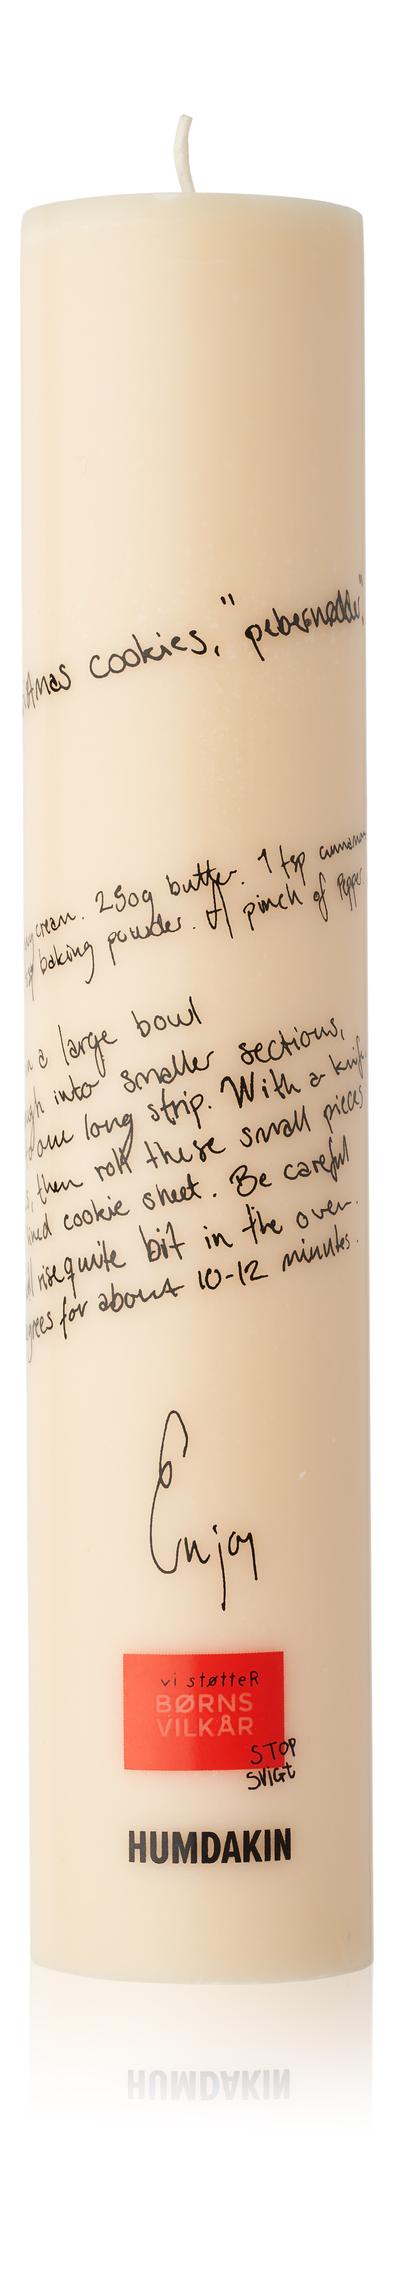 cookies, "pebernødder"
cream. 250g butter. 1 tsp cinnamon
baking powder. 1 pinch of Pepper.
a large bowl
into smaller sections,
one long strip. With a knife
, then roll these small pieces
cookie sheet. Be careful
rise quite bit in the oven.
for about 10-12 minutes.
Enjoy
vi støtteR
BØRNS
VILKÅR
STOP
SVIGt
HUMDAKIN